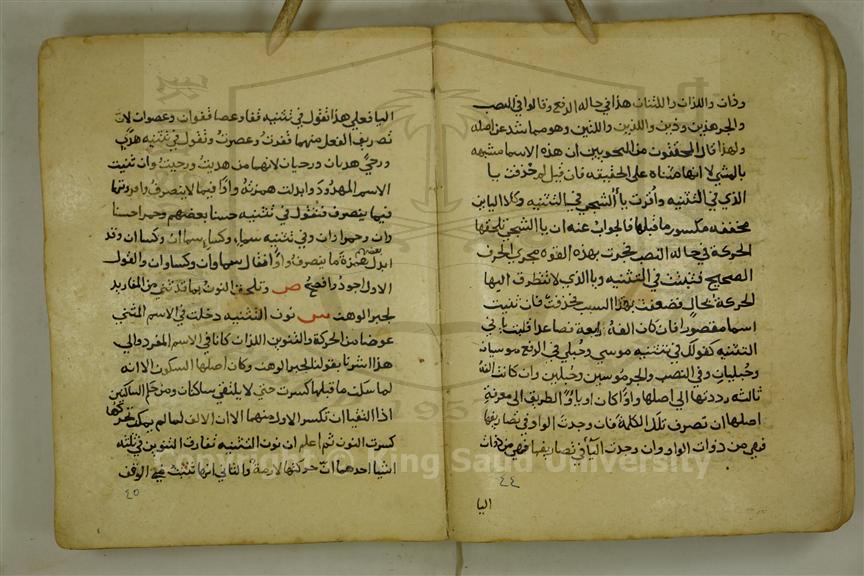 وذان واللذان واللتان هذا في حاله الرفع وقالوا في النصب
والجر هذين وذين واللذين واللتين وهو مما شذ عن اصله
ولهذا قال المحققون من النحويين ان هذه الاسما مشبهه
بالمثني لا انها مثناه علي الحقيقه فان قيل لم حذفت يا
الذي في التثنيه واقرت يا الشجي في التثنيه وكلا اليايين
مخففه مكسور ما قبلها فالجواب عنه ان يا الشجي تلحقها
الحركة في حاله النصب فجرت بهذه القوه مجري الحرف
الصحيح فثبتت في التثنيه ويا الذي لا تتطرق اليها
الحركة بحال فضعفت بهذا السبب فحذفت فان ثنيت
اسما مقصورا فان كان الفه رابعة فصاعدا قلبتها في
التثنيه كقولك في تثنيه موسي وحبلي في الرفع موسيان
وحبليان وفي النصب والجر موسيين وحبليين وان كانت الفه
ثالثه رددتها الي اصلها واوا كان او ياء والطريق الي معرفة
اصلها ان تصرف تلك الكلمة فان وجدت الواو في تصاريفها
فهي من ذوات الواو وان وجدت اليا في تصاريفها فهي من ذوات
٤٤
اليا
اليا فعلي هذا تقول في تثنيه قفا وعصا قفوان وعصوان لان
تصريف الفعل منهما قفوت وعصوت وتقول في تثنيه هدي
ورحي هديان ورحيان لانهما من هديت ورحيت وان ثنيت
الاسم الممدود ابدلت همزته واوا فيما لا ينصرف واقررتها
فيما ينصرف فتقول في تثنيه حسنا بعضهم وحمرا حسنا
وان وحمراوان وفي تثنيه سماء وكساء سماان وكساان وقد
ابدل بعضهم همزة ما ينصرف واوا فقال سماوان وكساوان والقول
الاول اجود وافصح ص وتلحق النون بما قد ثني من المفاريد
لجبر الوهن س نون التثنيه دخلت في الاسم المثني
عوضا من الحركة والتنوين اللذان كانا في الاسم المفرد والي
هذا اشرنا بقولنا لجبر الوهن وكان اصلها السكون الا انه
لما سكن ما قبلها كسرت حتي لا يلتقي ساكنان ومن حكم الساكنين
اذا التقيا ان تكسر الاول منهما الا ان الالف لما لم يمكن تحركها
كسرت النون ثم اعلم ان نون التثنيه تفارق التنوين في ثلثه
اشيا احدها ان حركتها لازمة والثاني انها تثبت في الوقف
٤٥
Copyright © King Saud University
1957